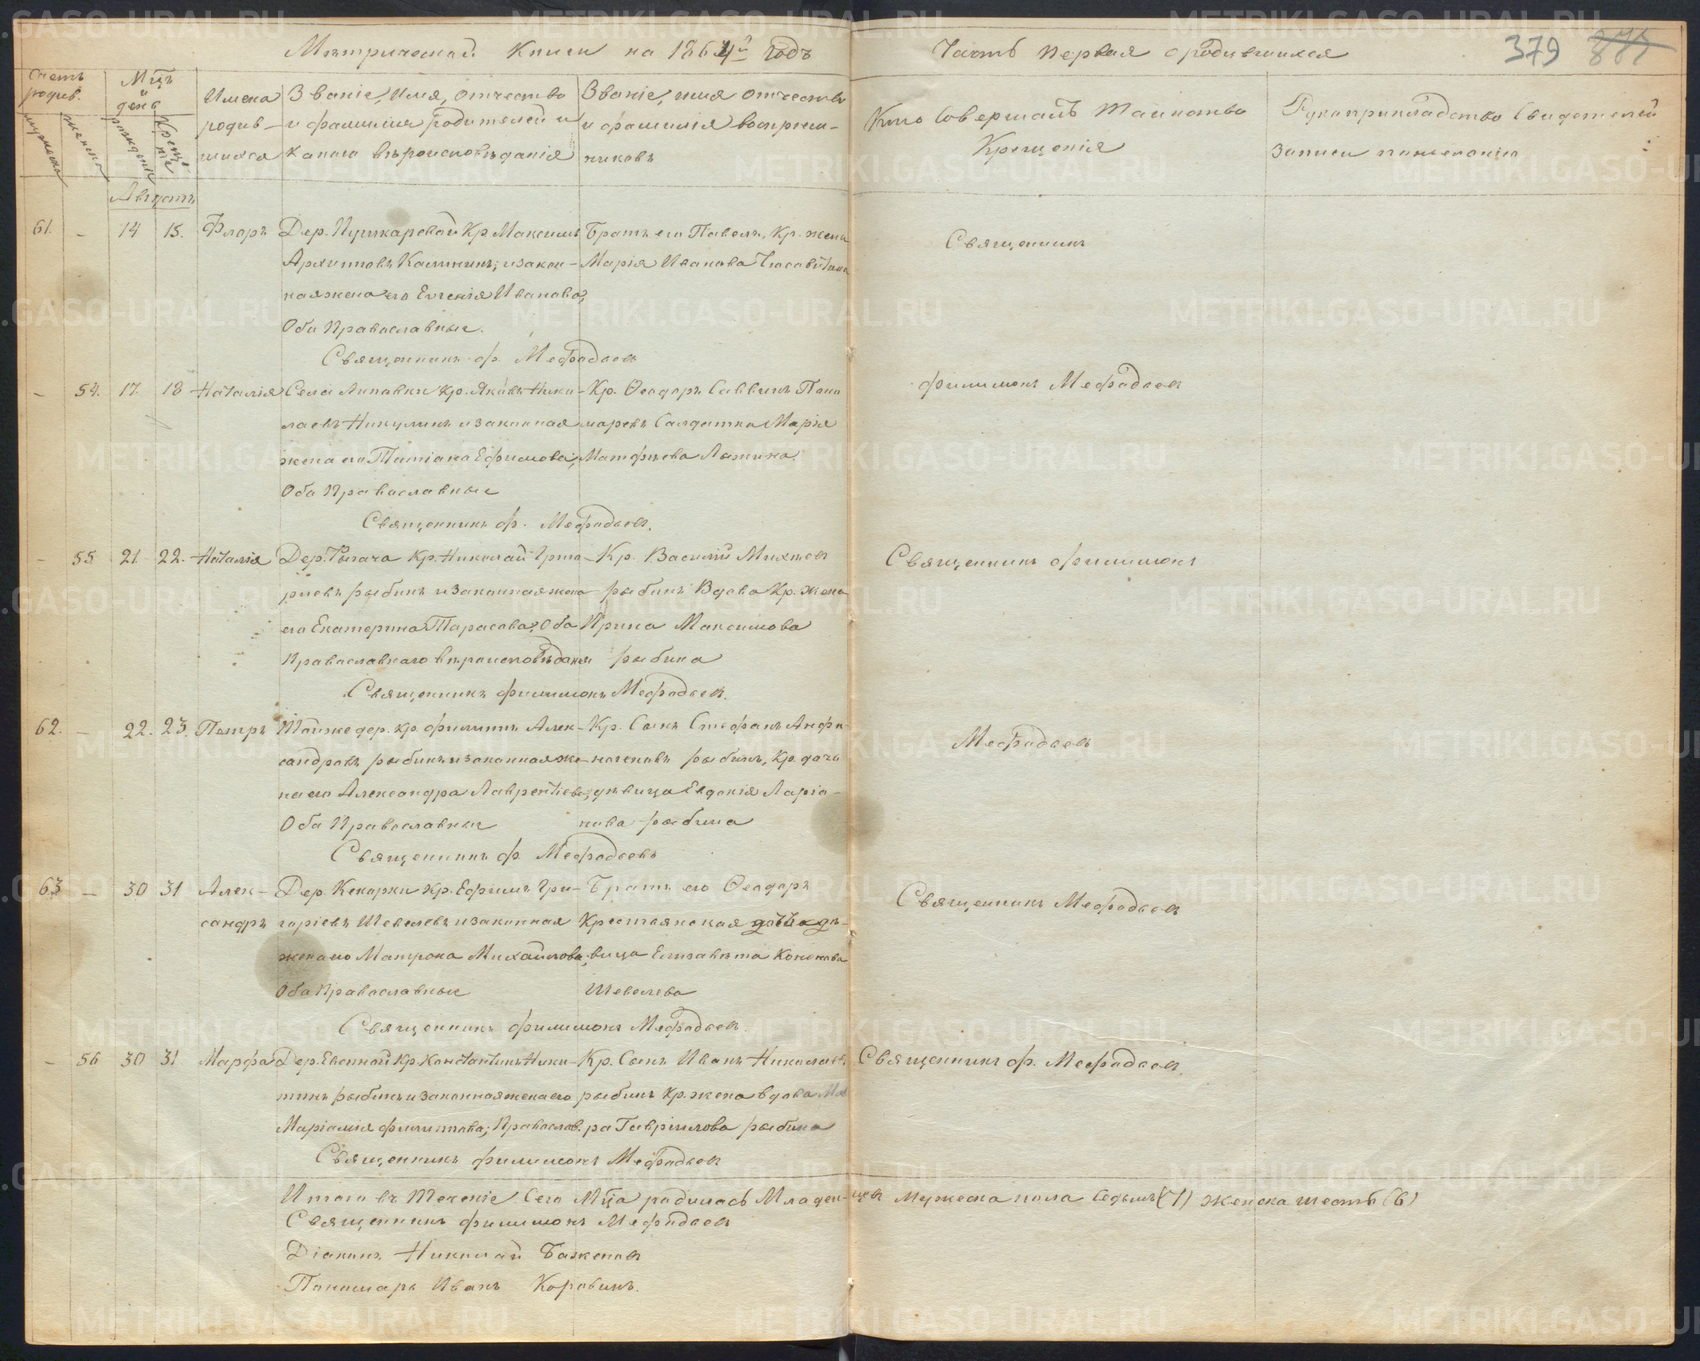 Метрической Книги на 1864й годъ
Часть первая о родившихся
379
Счетъ родив.
мужеска
женска
Мѣц. и день
рожденія
Крещенія
Имена родившихся
Званіе, Имя, отчество и фамилия родителей и какого вѣроисповѣданія
Званіе, имя отчество и фамилія воспріемниковъ
Кто совершалъ таинство Крещенія
Рукоприкладство свидетелей записи по желанію
Августъ
61. - 14 15. Флоръ
Дер. Пушкаревой Кр. Максимъ
Архиповъ Калининъ; и закон-
ная жена его Евгенія Иванова;
Оба Православные.
Братъ его Павелъ, Кр. жена
Марія Иванова
Священникъ ф. Мефодьевъ
Священникъ
- 54. 17. 18 Наталія
Села Липовки Кр. Яковъ Нико-
лаевъ Никулинъ и законная
жена его Татіана Ефимова;
Оба Православные
Кр. Ѳеодоръ Саввинъ Поно-
маревъ Салдатка Марія
Матфѣева
Священникъ ф. Мефодьевъ.
Филимонъ Мефодьевъ
- 55 21. 22. Наталія
Дер. Кр. Николай Григо-
рьевъ рыбинъ и законная жена
его Екатерина Тарасова; Оба
Православнаго вѣроисповѣданія
Кр. Василій
рыбинъ Вдова Кр. жена
Ирина Максимова
рыбина
Священникъ филимонъ Мефодьевъ.
Священникъ филимонъ
62. - 22. 23. Петръ
Той же дер. Кр. Филиппъ Алек-
сандровъ рыбинъ и законная же-
на его Александра Лаврентіева;
Оба Православные
Кр. Сынъ Стефанъ
рыбинъ, Кр. дочь
дѣвица Евдокія Ларіо-
нова рыбина
Священникъ ф. Мефодьевъ
Мефодьевъ
63 - 30 31 Алек-
сандръ
Дер. Кекорки Кр. Ефимъ Гри-
горіевъ Шевелевъ и законная
жена его Матрона Михайлова;
Оба Православные
Братъ его Ѳеодоръ
Крестьянская дочь дѣ-
вица Елизавѣта Кононова
Шевелева
Священникъ филимонъ Мефодьевъ.
Священникъ Мефодьевъ
- 56 30 31 Марфа
Дер. Кр. Константинъ Ники-
тинъ рыбинъ и законная жена его
Маріамія филиппова; Православ.
Кр. Сынъ Иванъ Николаевъ
рыбинъ Кр. жена вдова
ра Гаврилова рыбина
Священникъ филимонъ Мефодьевъ
Священникъ ф. Мефодьевъ.
Итого въ теченіе сего Мѣца родилось Младенцевъ Мужеска пола седмь (7) женска шесть (6)
Священникъ филимонъ Мефодьевъ
Діаконъ Николай Баженовъ
Пономарь Иванъ Коровинъ.
METRIKI.GASO-URAL.RU